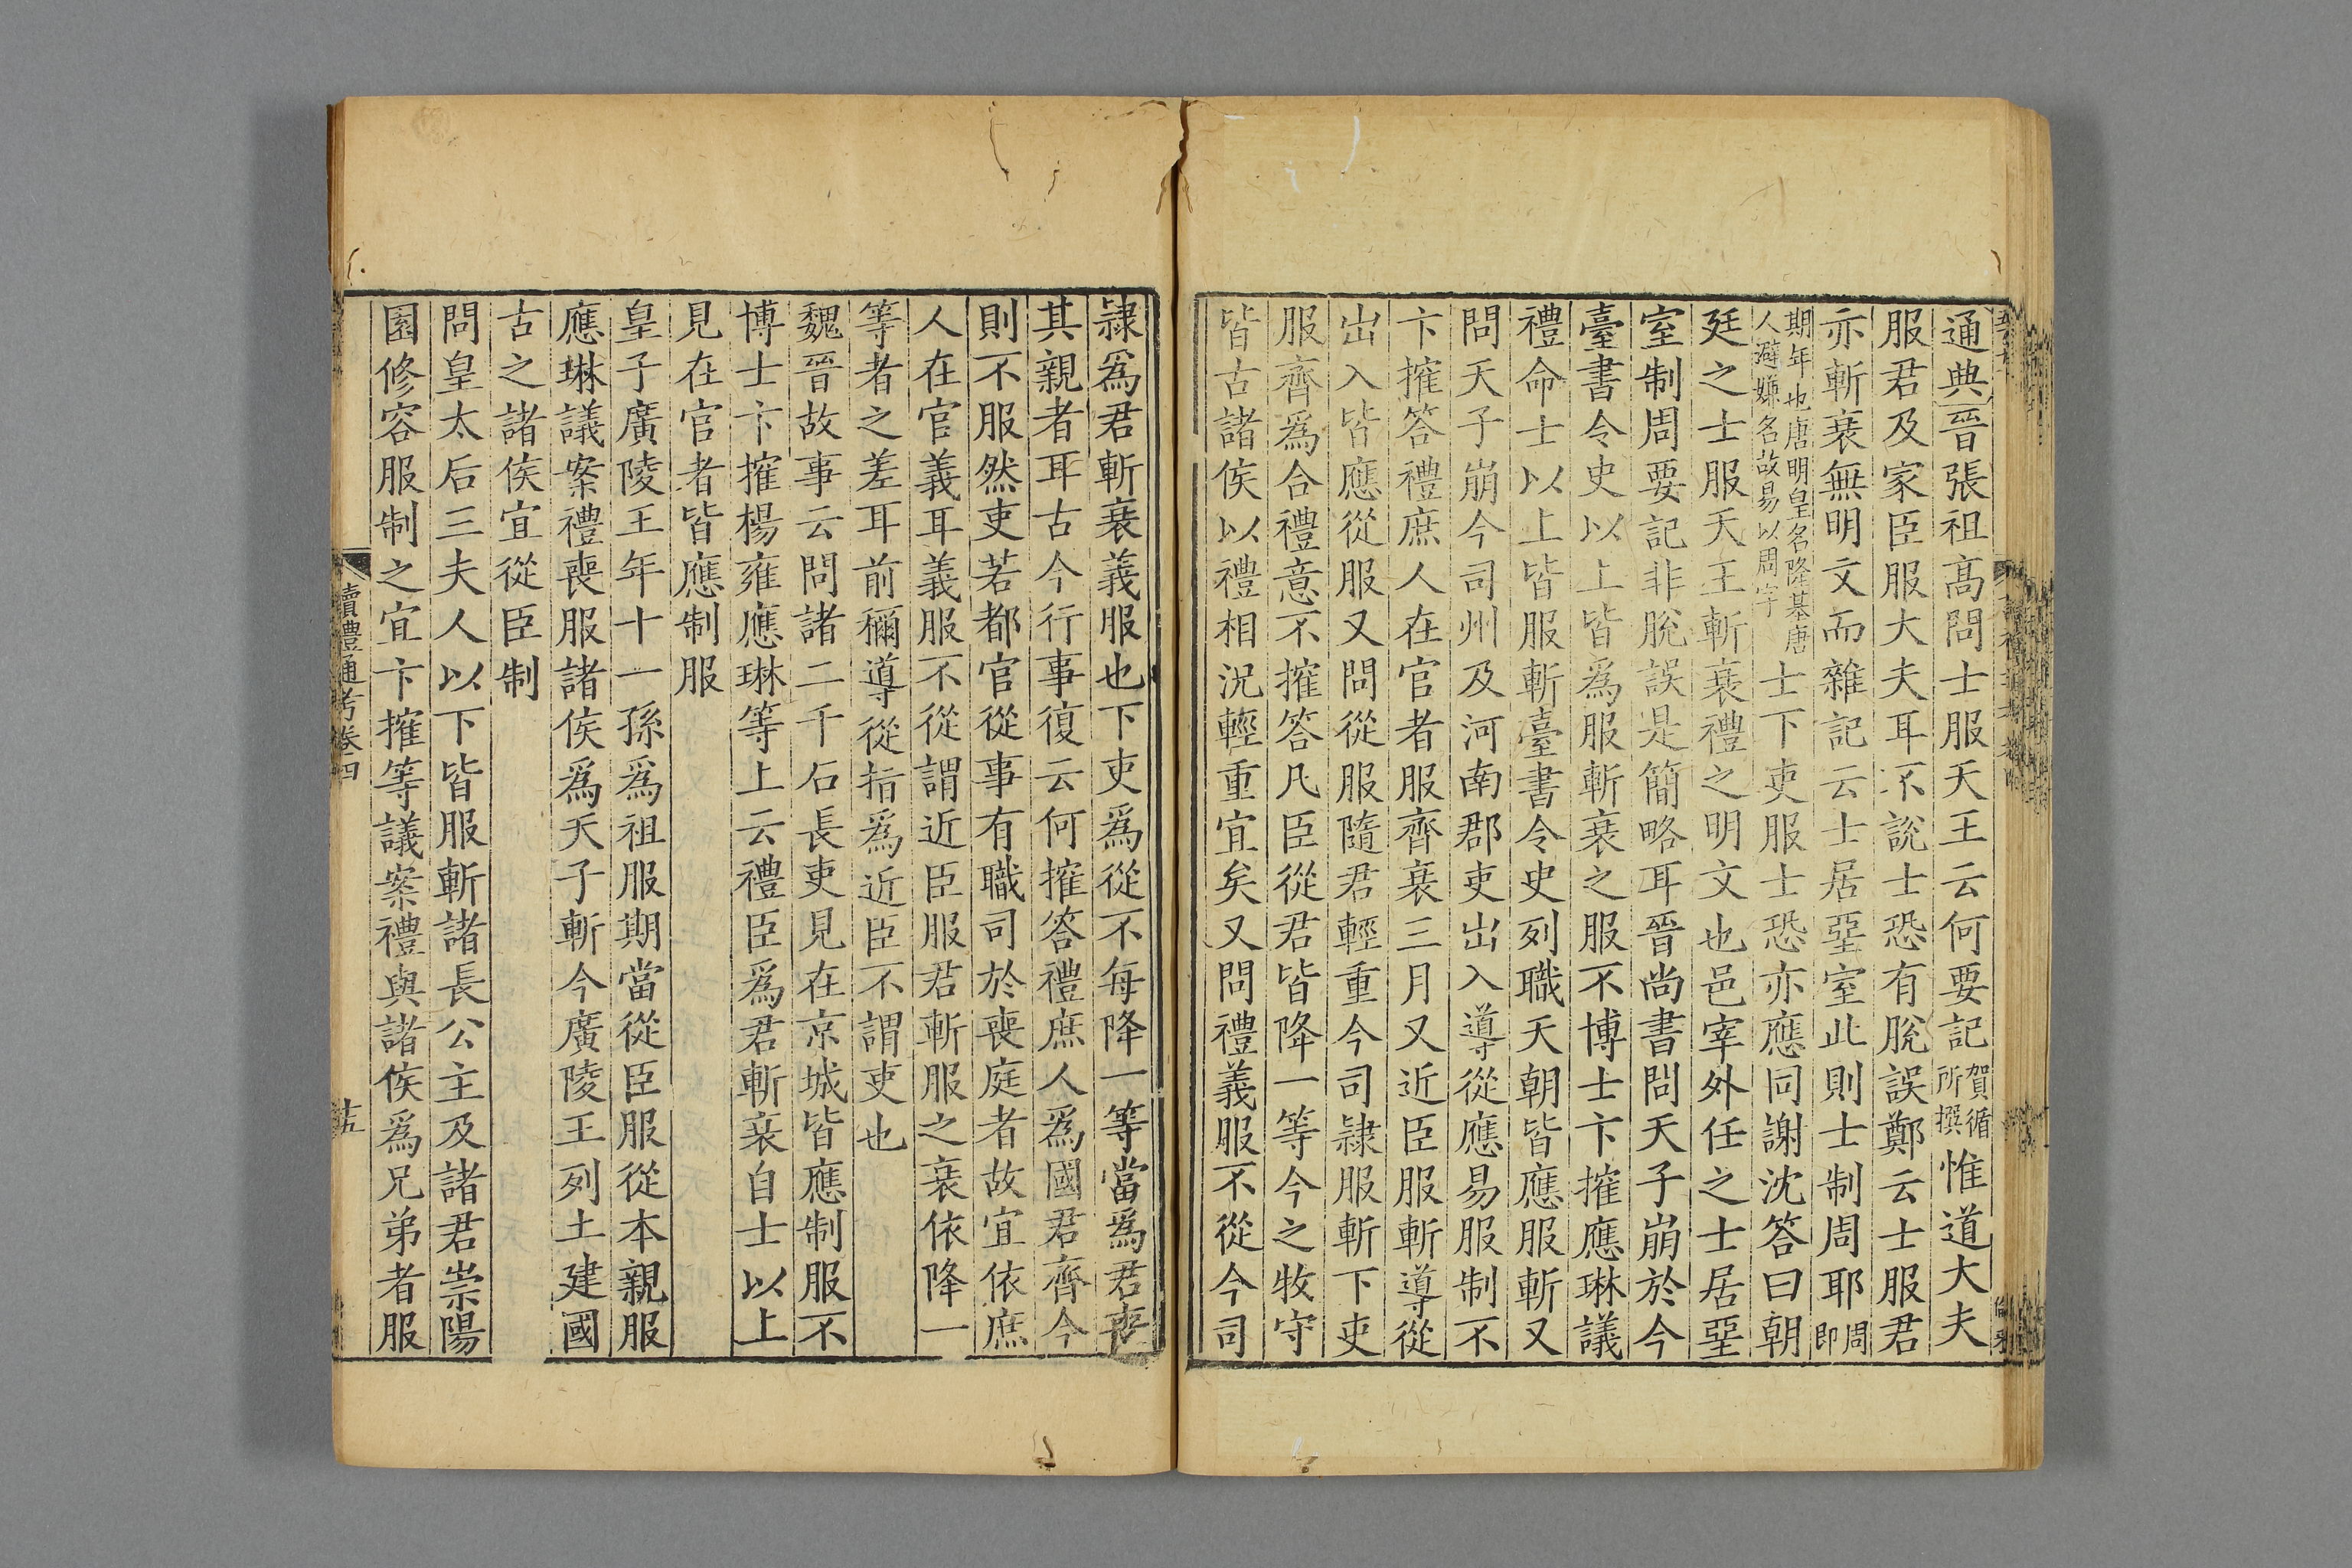 通典晉張祖高問士服天王云何要記賀循所撰惟道大夫
服君及家臣服大夫耳不說士恐有脫誤鄭云士服君
亦斬衰無明文而雜記云士居堊室此則士制周耶周即
期年也唐明皇名隆基唐人避嫌名故易以周字士下吏服士恐亦應同謝沈答曰朝
廷之士服天王斬衰禮之明文也邑宰外任之士居堊
室制周要記非脫誤是簡略耳晉尚書問天子崩於今
臺書令史以上皆為服斬衰之服不博士卞搉應琳議
禮命士以上皆服斬臺書令史列職天朝皆應服斬又
問天子崩今司州及河南郡吏出入導從應易服制不
卞搉答禮庶人在官者服齊衰三月又近臣服斬導從
出入皆應從服又問從服隨君輕重今司隷服斬下吏
服齊爲合禮意不搉答凡臣從君皆降一等今之牧守
皆古諸侯以禮相況輕重宜矣又問禮義服不從今司
隷爲君斬衰義服也下吏爲從不每降一等當爲君喪
其親者耳古今行事復云何搉答禮庶人爲國君齊今
則不服然吏若都官從事有職司於喪庭者故宜依庶
人在官義耳義服不從謂近臣服君斬服之衰依降一
等者之差耳前禰導從指爲近臣不謂吏也
魏晉故事云問諸二千石長吏見在京城皆應制服不
博士卞搉楊雍應琳等上云禮臣爲君斬衰自士以上
見在官者皆應制服
皇子廣陵王年十一孫爲祖服期當從臣服從本親服
應琳議案禮喪服諸侯爲天子斬今廣陵王列土建國
古之諸侯宜從臣制
問皇太后三夫人以下皆服斬諸長公主及諸君崇陽
園修容服制之宜卞搉等議案禮與諸侯爲兄弟者服
讀禮通考卷四
十五